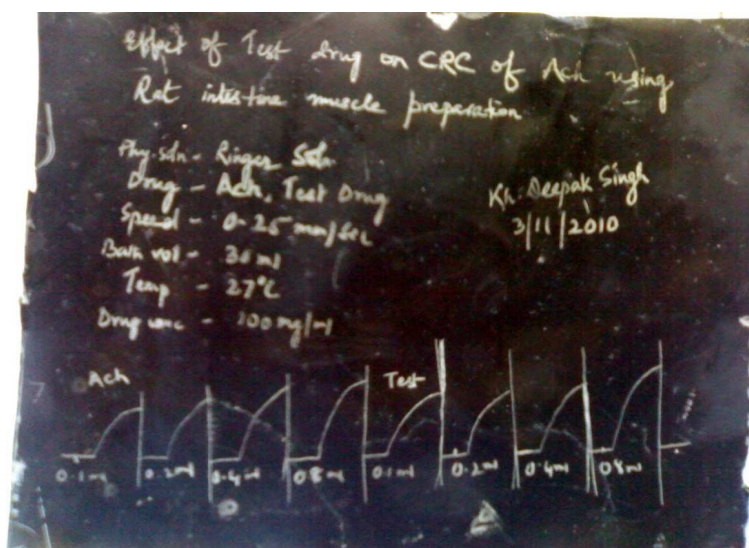 Effect of Test drug on CRC of Ach using
Rat intestine muscle preparation
Phy. soln - Ringer Soln
Drug - Ach, Test Drug
Speed - 0.25 mm/sec
Bath vol - 30 ml
Temp - 27°C
Drug conc - 100 mg/ml
Kh. Deepak Singh
3/11/2010
Ach Test
0.1ml 0.2ml 0.4ml 0.8ml 0.1ml 0.2ml 0.4ml 0.8ml